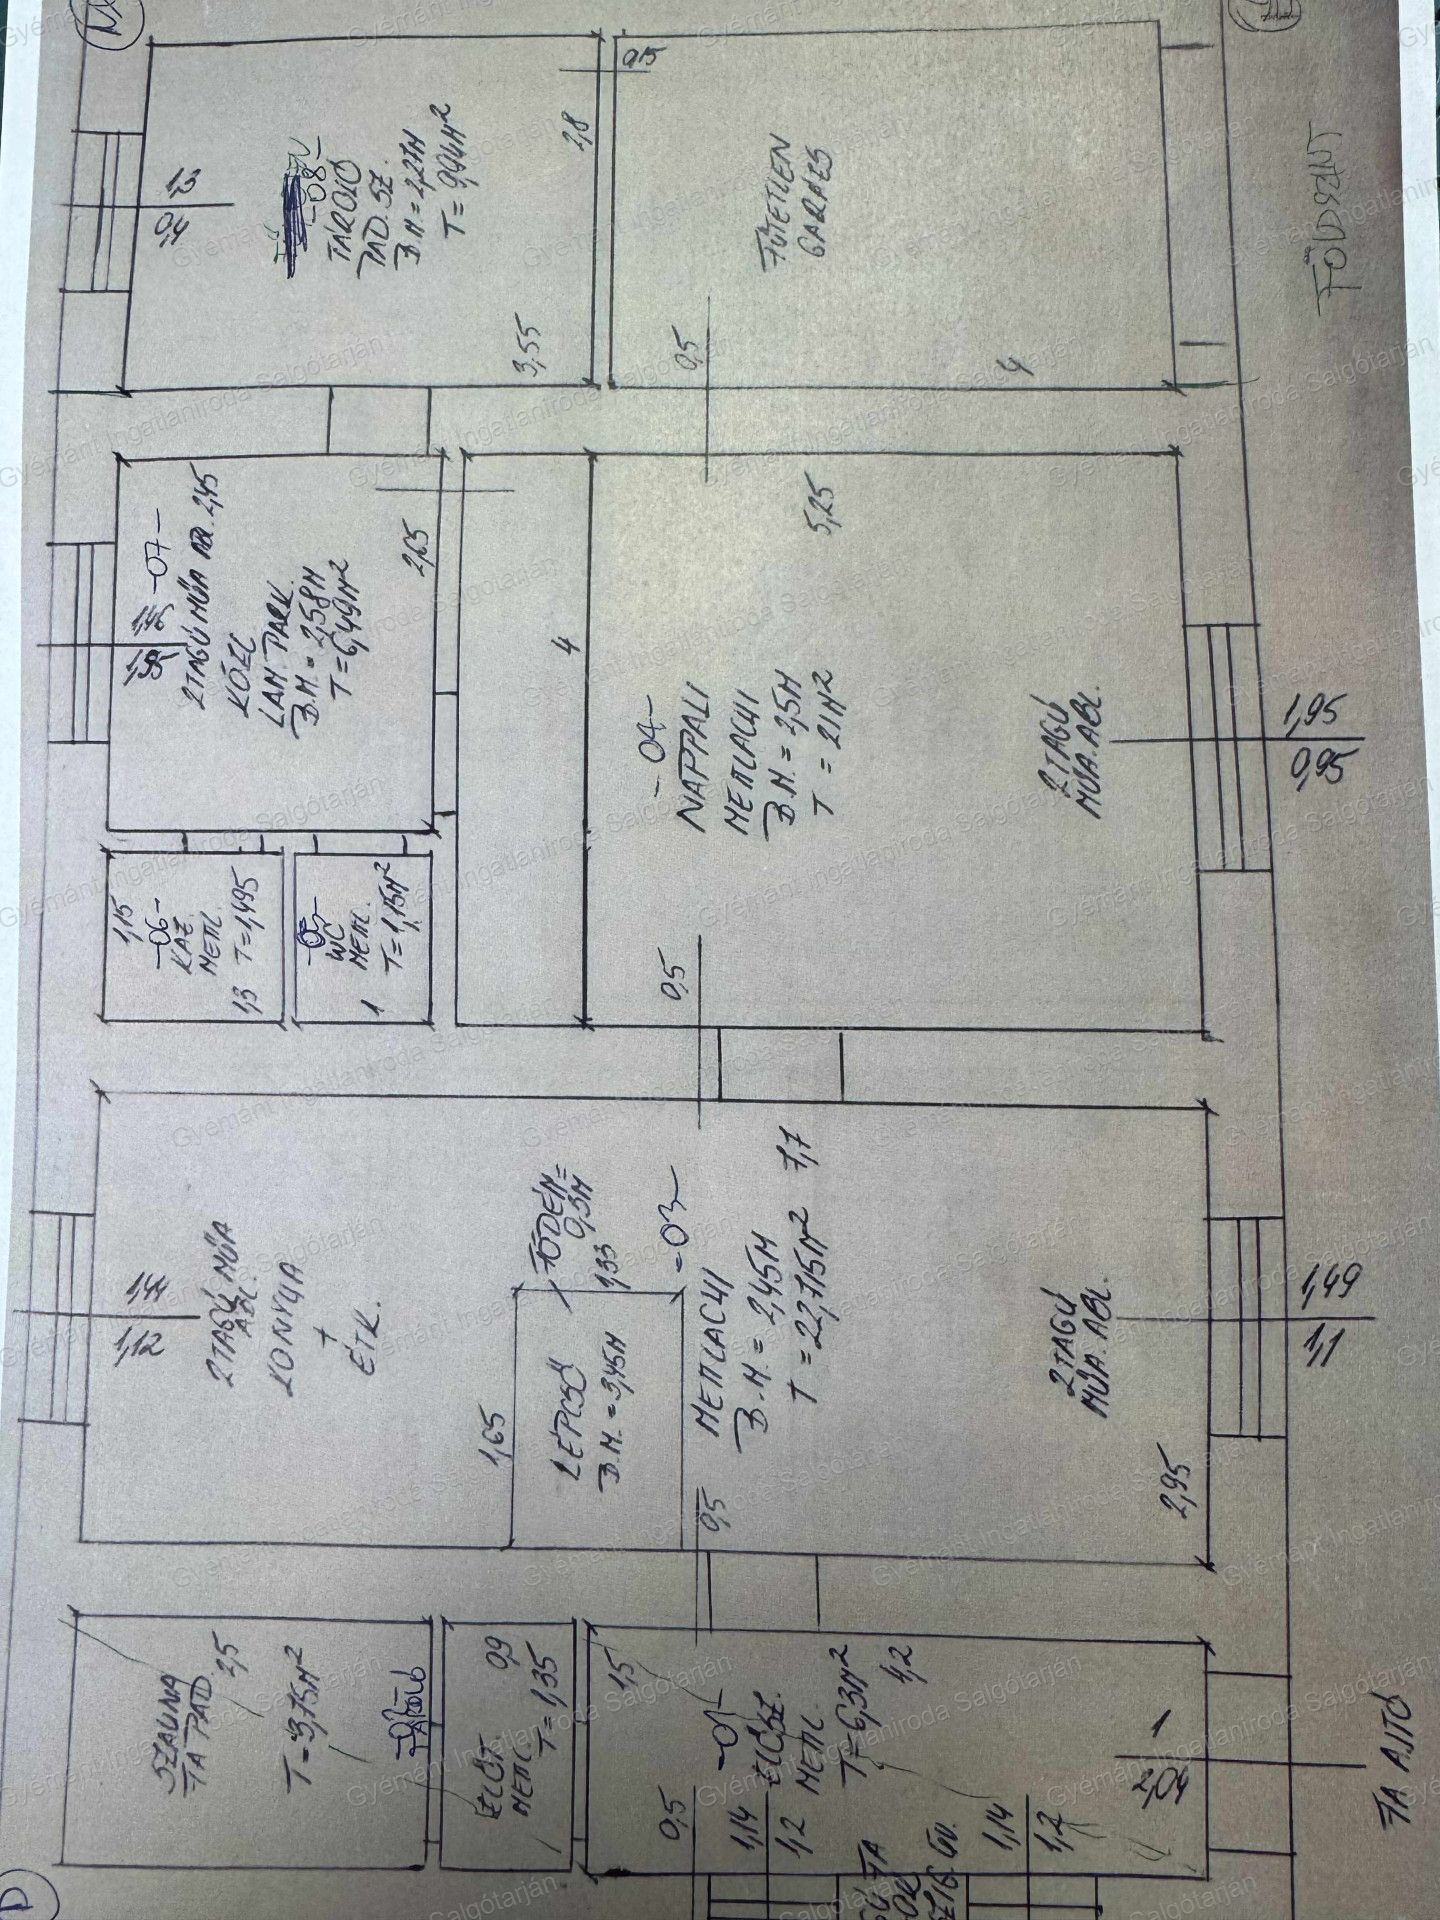 SZAUNA
FA PAD.
2,5
T = 3,75M²
-02-
ELŐT
METL
0,9
T = 1,35
1,5
-01-
ELŐSZ.
METL.
T = 6,3M²
4,2
0,5
1,14
1,2
1,14
1,2
1
2,04
FA AJTÓ
1,44
1,12
2 TAGÚ MŰA
ABL.
KONYHA
+
ÉTK.
1,65
LÉPCSŐ
B.M. = 3,45M
FÖDÉM =
0,3M
1,33
-03-
METLACHI
B.M. = 2,45M
T = 22,715M²
7,7
0,5
2 TAGÚ
MŰA. ABL.
2,95
1,49
1,1
1,15
-06-
KAZ.
METL.
1,3
T = 1,495
-05-
WC
METL.
1
T = 1,15M²
1,46
1,95
-07-
2 TAGÚ MŰA ABL. 2,45
KÖZL
LAM. PARK.
B.M. = 2,58M
T = 6,49M²
2,65
4
-04-
NAPPALI
METLACHI
B.M. = 2,5M
T = 21M²
5,25
0,5
0,5
2 TAGÚ
MŰA. ABL.
1,95
0,95
1,3
0,4
-08-
TÁROLÓ
PAD. SZ.
B.M. = 2,27M
T = 9,94M²
3,55
2,8
0,15
FŰTETLEN
GARÁZS
4
FÖLDSZINT
D
Gyémánt Ingatlaniroda Salgótarján